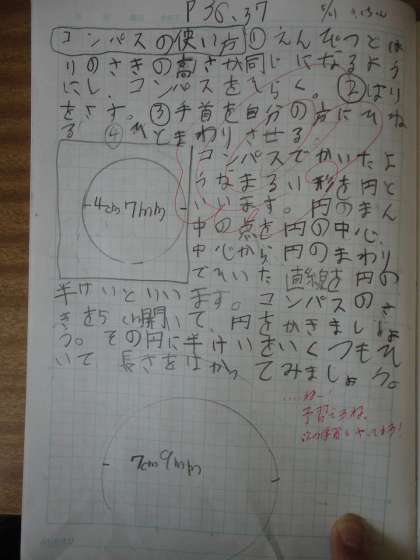 P36.37
コンパスの使い方 ①えんぴつとは
りのさきの高さが同じになるよう
にし、コンパスをひらく。②はり
をさす。③手首を自分の方にひね
る ④ひとまわりさせる
コンパスでかいたよ
うなまるい形を円と
いいます。円のまん
中の点を円の中心、
中心から、円のまわり
でひいた直線を円の
半けいといいます。コンパスのさ
きを5cm開いて、円をかきましょ
う。その円に半けいをいくつもひ
いて長さをはかってみましょう。
4cm7mm
7cm9mm